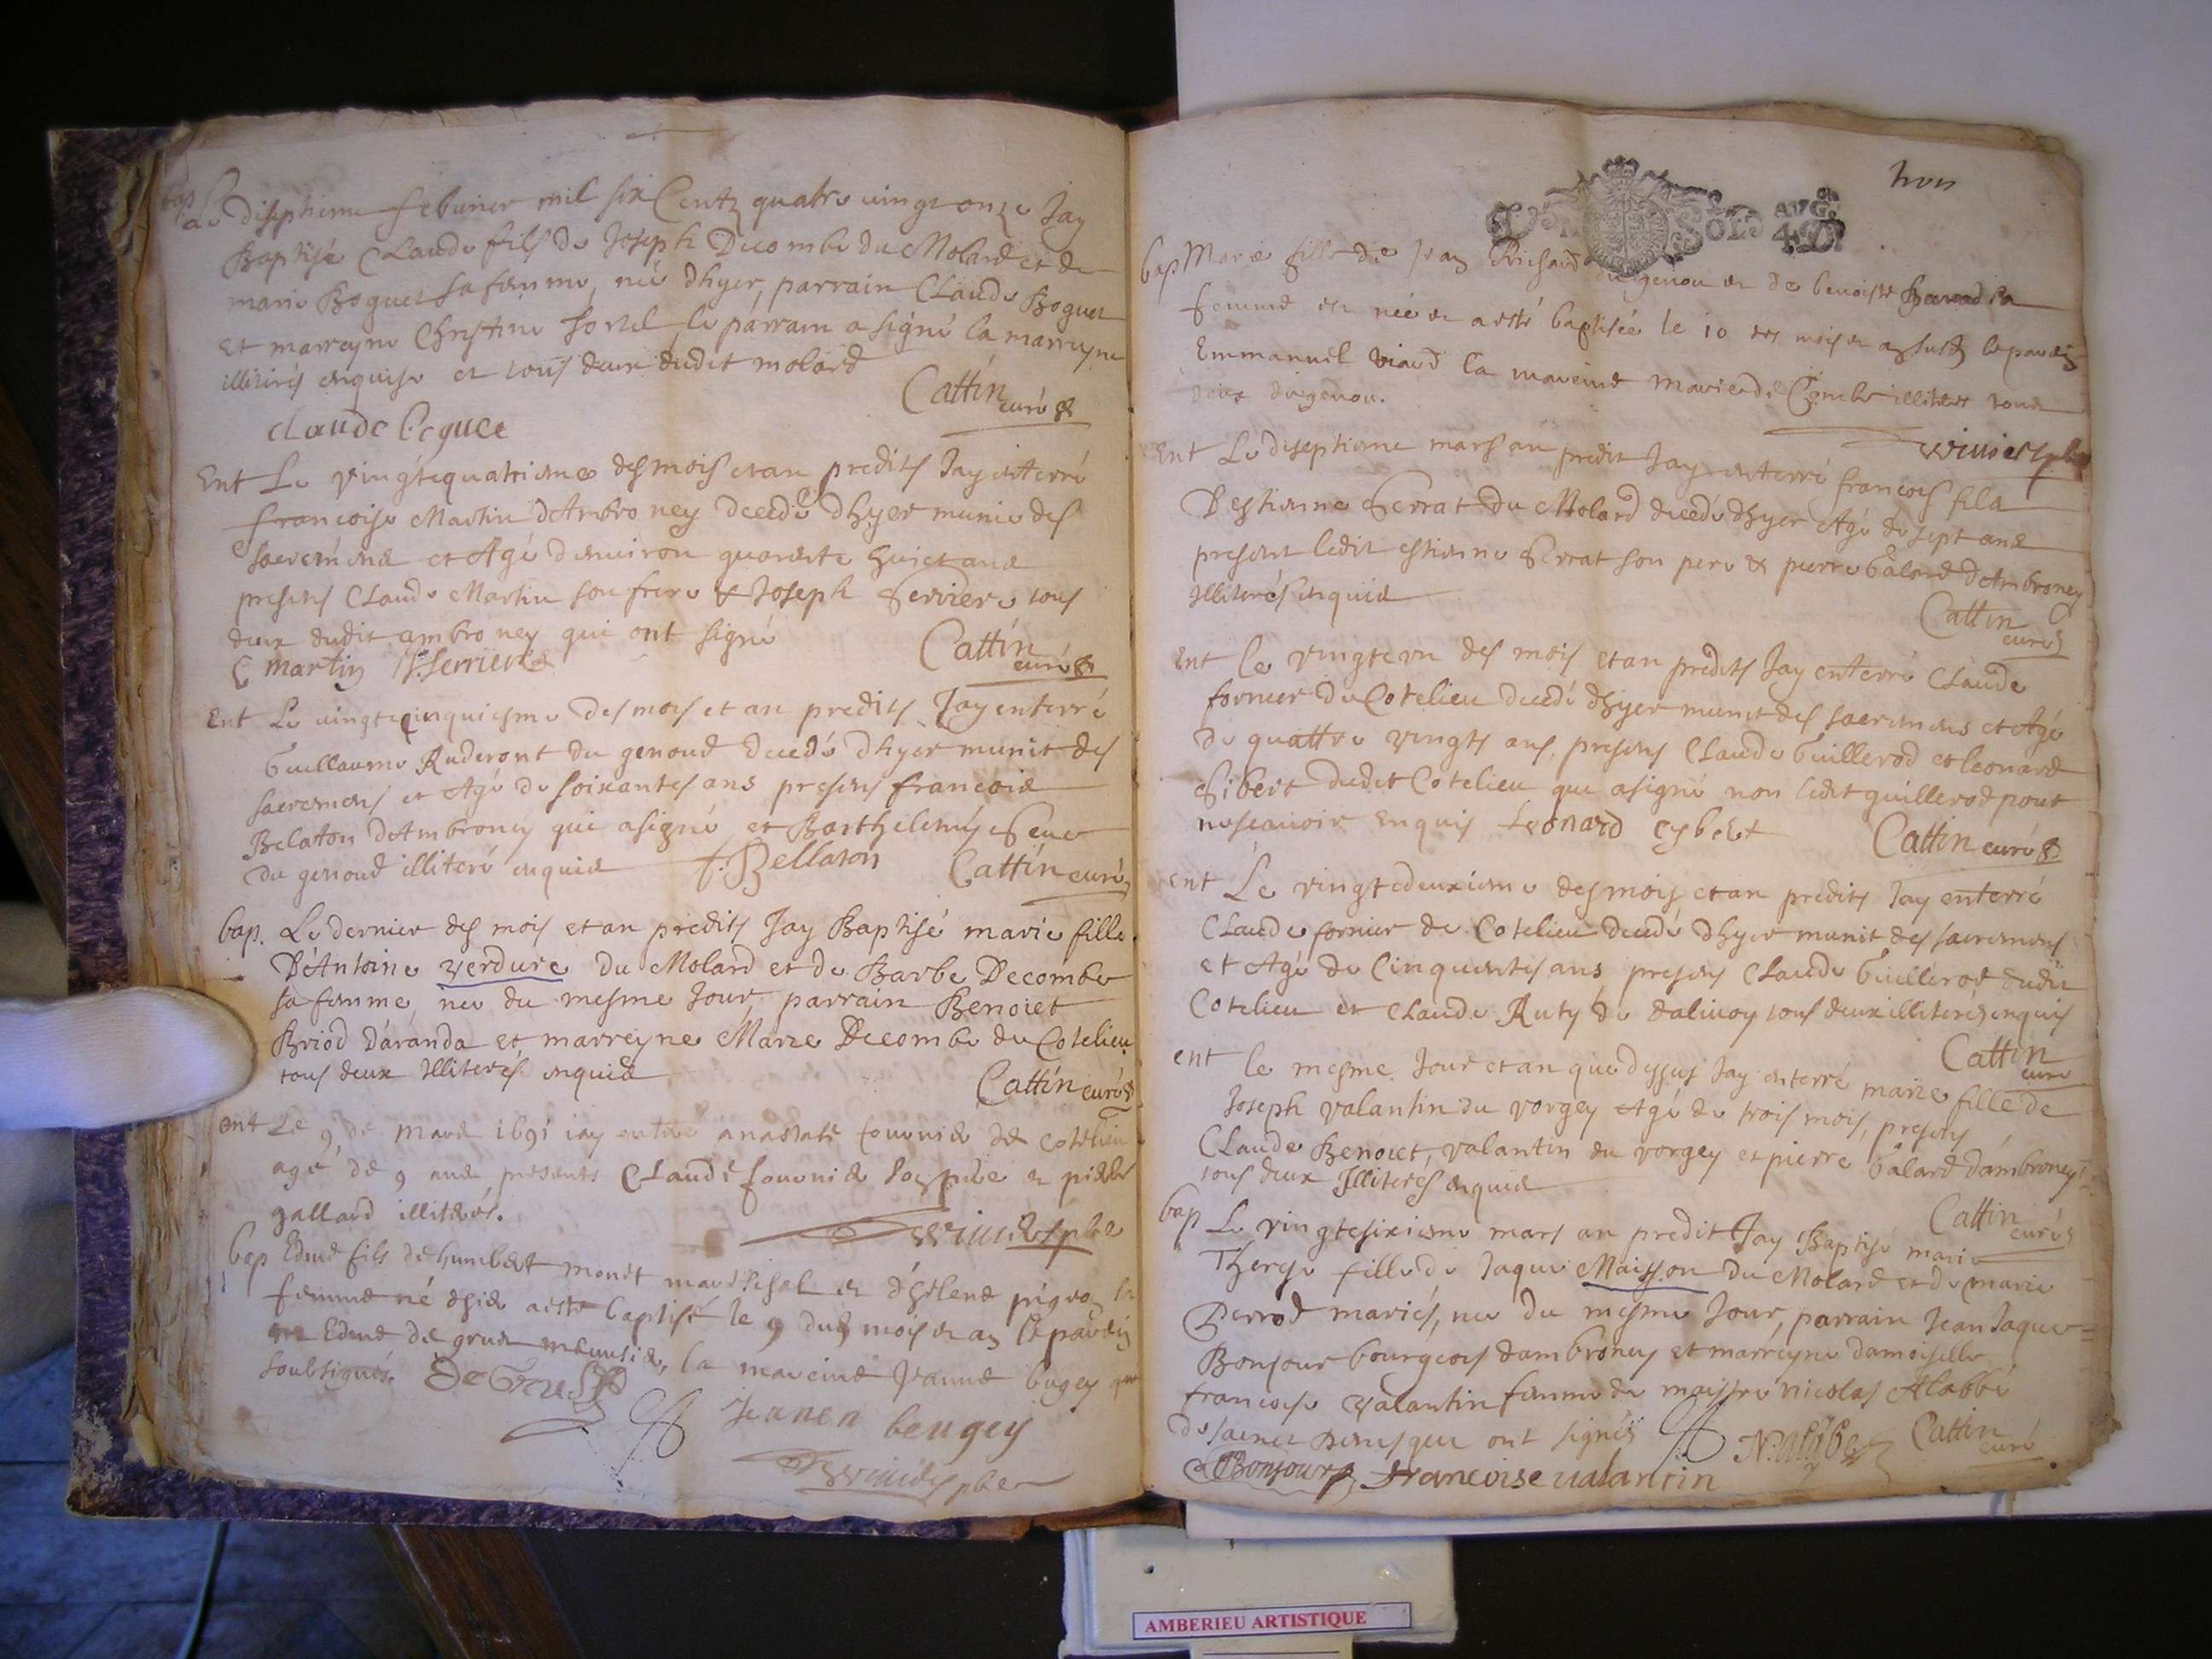 bap
Le diseptieme febvrier mil six Centz quatre vingt onze Jay
Baptisé Claude fils de Joseph Decombe du Molard et de
marie Boguet sa femme, née dhyer, parrain Claude Boguet
et marreyne Christine le parrain a signé la marreyne
illitirés enquise et tous deux dudit molard
Cattin curé
claude Boguee
Ent Le vingtequatrieme des mois et an predits Jay enterré
francoise Martin dAmbroney decedée dhyer munie des
sacremens et Agé denviron quarente huict ans
presens Claude Martin son frere & Joseph Serriere tous
deux dudit ambroney qui ont signé
Cattin curé
C martin J. Serriere
Ent Le vingtecinquiesme des mois et an predits Jay enterré
Guillaume Ruderont du genoud decedé dhyer munit des
sacremens et Agé de soixantes ans presens francois
Belaton dAmbroney qui a signé et Barthelemy
du genoud illiteré enquis f. Bellaton Cattin curé
bap. Le dernier des mois et an predits Jay Baptisé marie fille
D'Antoine verdure du Molard et de Barbe Decombe
sa femme, née du mesme Jour, parrain Benoict
Briod Daranda et marreyne Marie Decombe du Cotelieu
tous deux Illiterés enquis
Cattin curé
ent Le 9 de mars 1691 iay enterré anastase fournier de cotelieu
agé de 9 ans presents Claude fournier son pere et pierre
gallard illiterés.
bap Edme fils de humbert monet mareschal et d'helene sa
femme né hier a esté baptisé le 9 dud mois et an le parrein
Edme de grus menusier, la mareine Jeanne bugey qui
soubsignés. De Grus
Jeanen beugey
trois
UN SOL
4.D.
bap Marie fille de Jean Richard du genou et de benoiste sa
femme est née et a esté baptisée le 10 des mois et an susd le parein
Emmanuel viard la mareine marie de Combe illiteres tous
deux du genou.
Ent Le diseptieme mars an predit Jay enterré francois fils
Destienne Serrat du Molard decedé dhyer Agé de sept ans
present ledit estienne Serrat son pere & pierre Galard dAmbroney
Illiterés enquis
Cattin curé
ent le vingtevn des mois et an predits Jay enterré Claude
fornier du Cotelieu decedé dhyer munit des sacremens et Agé
de quattre vingts ans, presens Claude Guillerod et leonard
Sibert dudit Cotelieu qui a signé non ledit guillerod pour
ne scauoir enquis Leonard cybert
Cattin curé
ent Le vingtedeuxieme des mois et an predits Jay enterré
Claude fornier de Cotelieu decedé dhyer munit des sacremens
et Agé de Cinquentes ans presens Claude Guillerod dudit
Cotelieu et Claude Ruty de dalivoy tous deux illiterés enquis
Cattin curé
ent le mesme Jour et an que dessus Jay enterré marie fille de
Joseph valantin du vorgey Agé de trois mois, presens
Claude Benoict, valantin du vorgey et pierre Galard dambroney
tous deux Illiterés enquis
Cattin curé
bap Le vingtesixieme mars an predit Jay Baptisé marie
Therese fille de Jaque Maisson du Molard et de marie
Perrod mariés, née du mesme Jour, parrain Jean Jaque
Bonjour bourgeois dambroney et marreyne damoiselle
francoise valantin femme de maistre nicolas Alabbé
de sainct denis qui ont signés N. alabbe Cattin curé
Bonjour francoise ualantin
AMBERIEU ARTISTIQUE